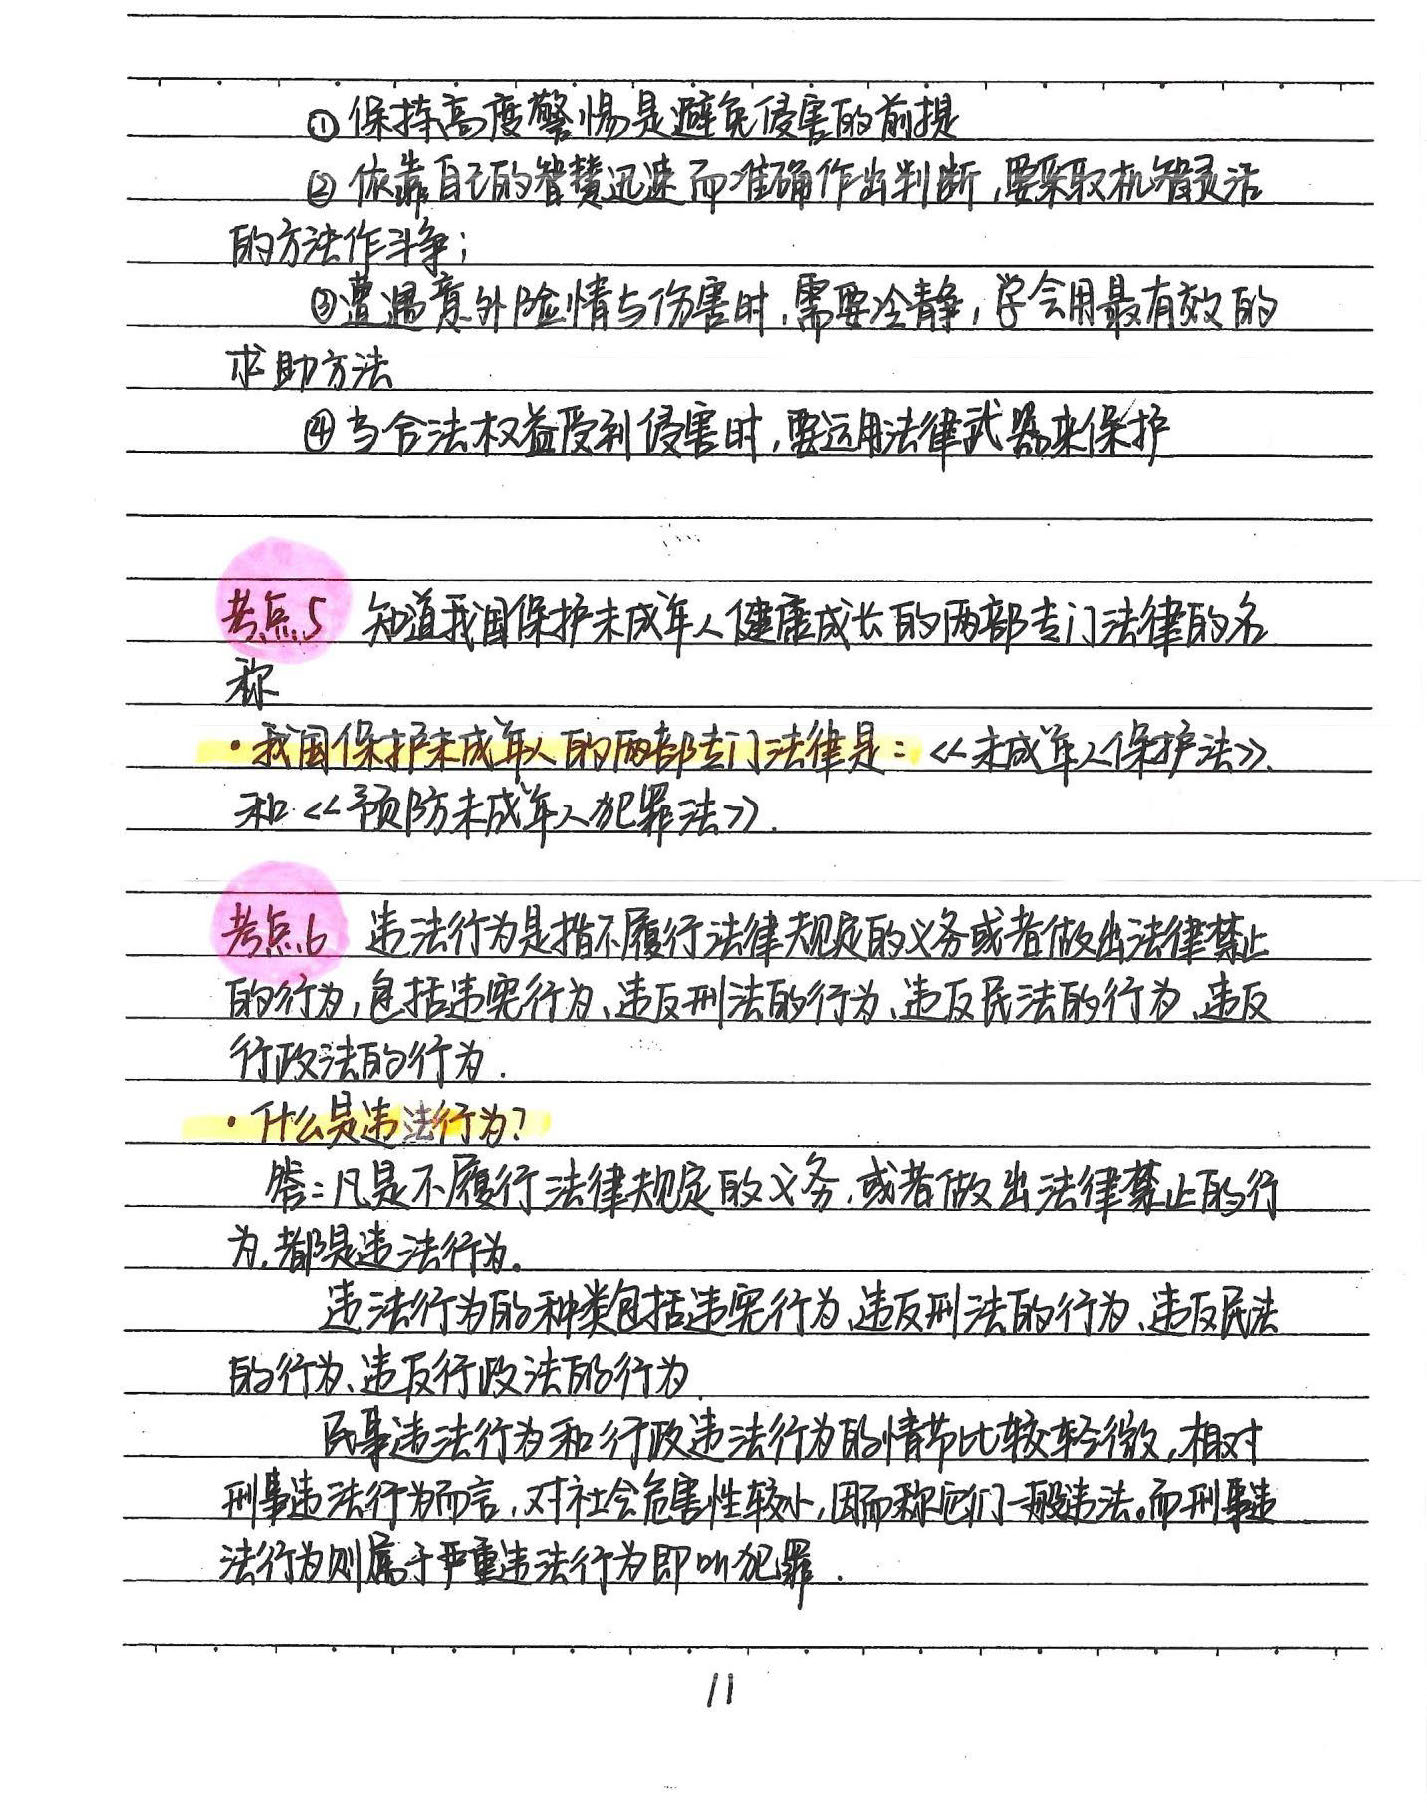 ①保持高度警惕是避免侵害的前提
②依靠自己的智慧迅速而准确作出判断,要采取机智灵活
的方法作斗争;
③遭遇意外险情与伤害时,需要冷静,学会用最有效的
求助方法
④当合法权益受到侵害时,要运用法律武器来保护
考点5 知道我国保护未成年人健康成长的两部专门法律的名
称
·我国保护未成年人的两部专门法律是:《未成年人保护法》、
和《预防未成年人犯罪法》.
考点6 违法行为是指不履行法律规定的义务或者做出法律禁止
的行为,包括违宪行为、违反刑法的行为、违反民法的行为、违反
行政法的行为.
·什么是违法行为?
答:凡是不履行法律规定的义务,或者做出法律禁止的行
为,都是违法行为。
违法行为的种类包括违宪行为、违反刑法的行为、违反民法
的行为、违反行政法的行为
民事违法行为和行政违法行为的情节比较轻微,相对
刑事违法行为而言,对社会危害性较小,因而称它们一般违法。而刑事违
法行为则属于严重违法行为即叫犯罪.
11